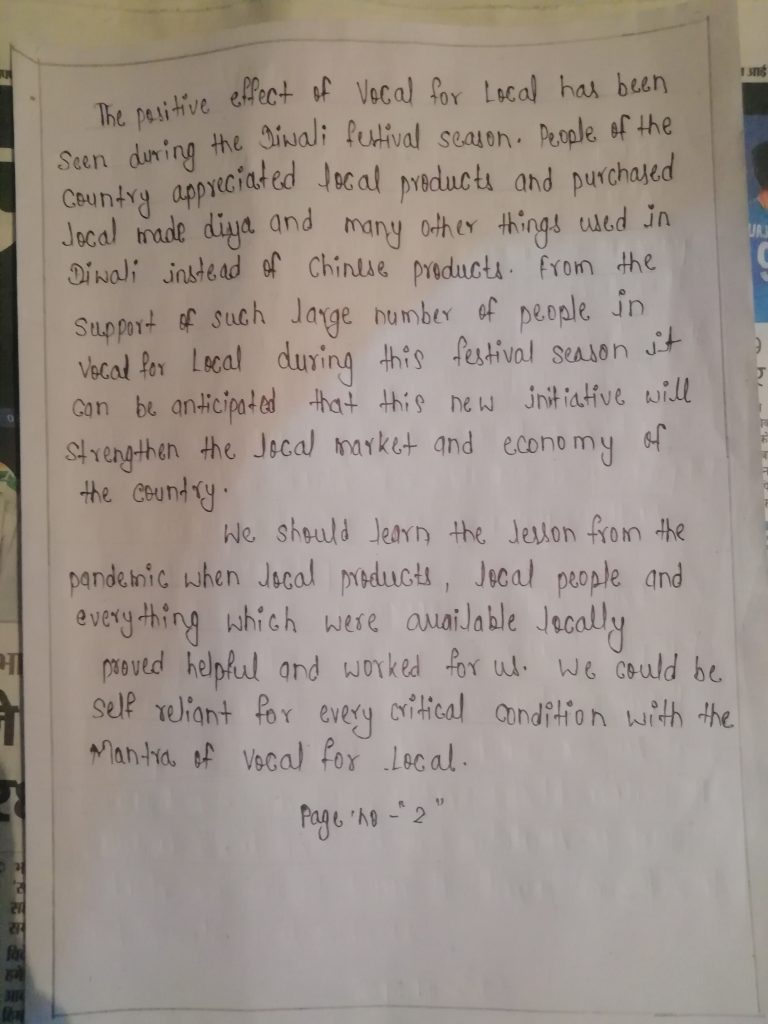 The positive effect of Vocal for Local has been
seen during the Diwali festival season. People of the
country appreciated local products and purchased
local made diya and many other things used in
Diwali instead of Chinese products. From the
support of such large number of people in
Vocal for Local during this festival season it
can be anticipated that this new initiative will
strengthen the local market and economy of
the country.
We should learn the lesson from the
pandemic when local products, local people and
everything which were available locally
proved helpful and worked for us. We could be
self reliant for every critical condition with the
Mantra of Vocal for Local.
Page no - "2"